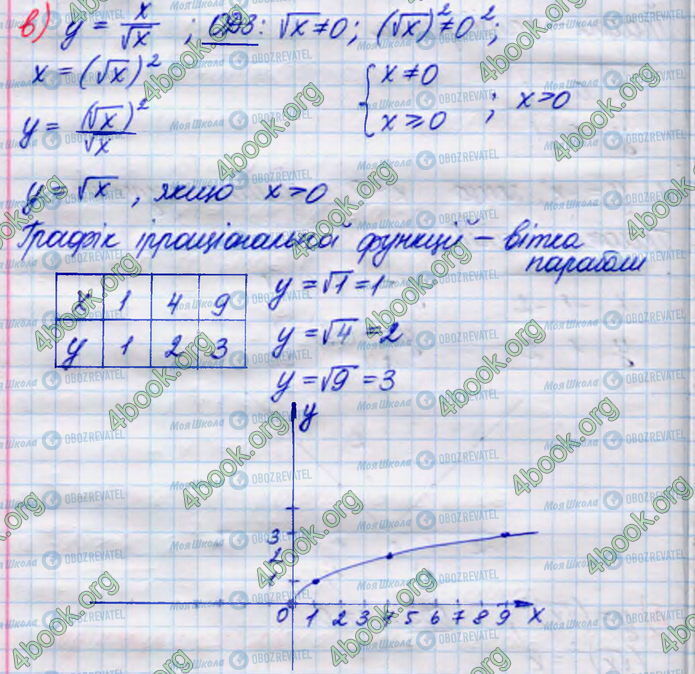 в) y = x/√x ; ОДЗ: √x ≠ 0; (√x)² ≠ 0²;
x = (√x)²
{ x ≠ 0
x ⩾ 0 ; x > 0
y = (√x)²/√x
y = √x , якщо x > 0
Графік ірраціональної функцій – вітка
параболи
x 1 4 9
y 1 2 3
y = √1 = 1
y = √4 = 2
y = √9 = 3
y
3
2
1
0 1 2 3 4 5 6 7 8 9 x
4book.org
МояШкола OBOZREVATEL